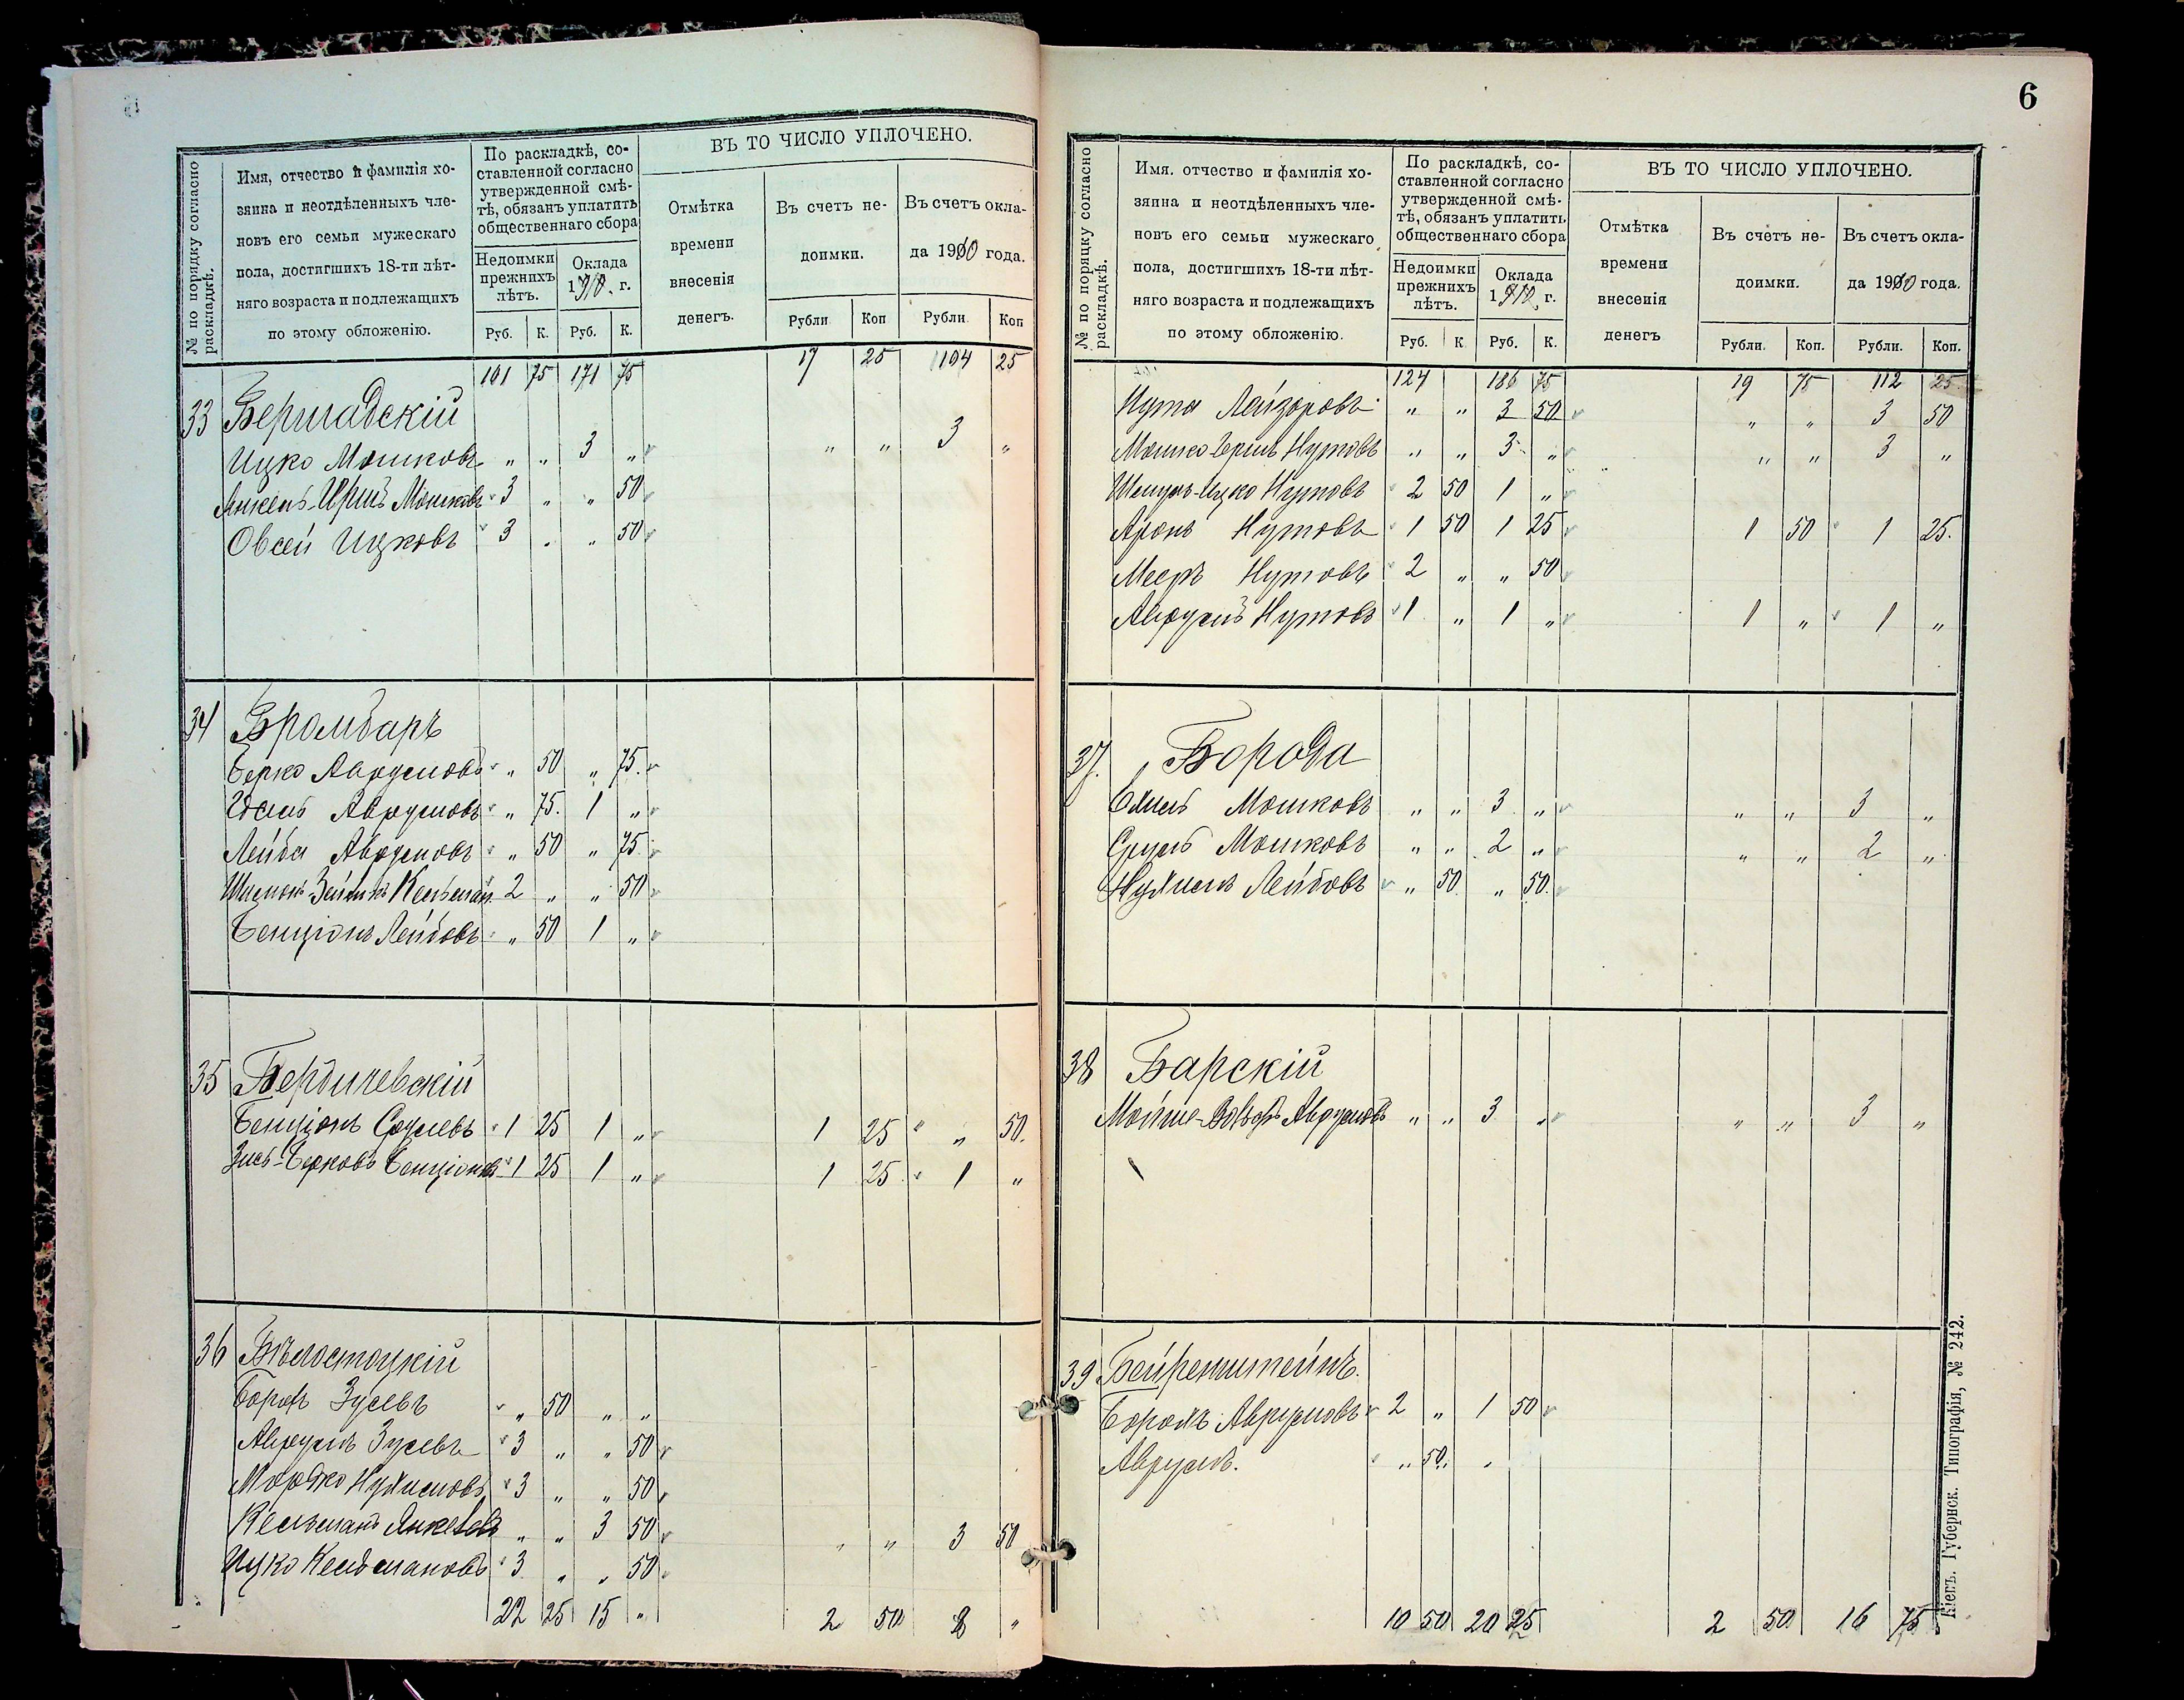 № по порядку согласно раскладкѣ.
Имя, отчество и фамилія хо-
зяина и неотдѣленныхъ чле-
новъ его семьи мужескаго
пола, достигшихъ 18-ти лѣт-
няго возраста и подлежащихъ
по этому обложенію.
По раскладкѣ, со-
ставленной согласно
утвержденной смѣ-
тѣ, обязанъ уплатить
общественнаго сбора
Недоимки
прежнихъ
лѣтъ.
Оклада
1910. г.
Руб. К. Руб. К.
ВЪ ТО ЧИСЛО УПЛОЧЕНО.
Отмѣтка
времени
внесенія
денегъ.
Въ счетъ не-
доимки.
Въ счетъ окла-
да 1910 года.
Рубли Коп Рубли Коп
101 75 171 75 17 25 104 25
33 Бершадскій
Ицко Мошковъ " " 3 " " " 3 "
Янкель-Иршъ Мошковъ 3 " " 50
Овсей Ицковъ 3 " " 50
34 Бромбаръ
Берко Аврумовъ " 50 " 75.
Іосль Аврумовъ " 75. 1 "
Лейба Аврумовъ " 50 " 75
2 " " 50
Бенціонъ Лейбовъ " 50 1 "
35 Бердичевскій
Бенціонъ Срулевъ 1 25 1 " 1 25 " 50.
Зись-Берковъ Бенціоновъ 1 25 1 " 1 25 1 "
36 Бѣлостоцкій
Борохъ Зусевъ " 50 " "
Аврумъ Зусевъ 3 " " 50
Мордко Нухимовъ 3 " " 50
Кельманъ Янкелевъ " " 3 50 " " 3 50
Ицко Кельмановъ 3 " " 50
22 25 15 " 2 50 8 "
6
№ по поряцку согласно раскладкѣ.
Имя. отчество и фамилія хо-
зяина и неотдѣленныхъ чле-
новъ его семьи мужескаго
пола, достигшихъ 18-ти лѣт-
няго возраста и подлежащихъ
по этому обложенію.
По раскладкѣ, со-
ставленной согласно
утвержденной смѣ-
тѣ, обязанъ уплатить
общественнаго сбора
Недоимки
прежнихъ
лѣтъ.
Оклада
1910. г.
Руб. К Руб. К.
ВЪ ТО ЧИСЛО УПЛОЧЕНО.
Отмѣтка
времени
внесенія
денегъ
Въ счетъ не-
доимки.
Въ счетъ окла-
да 1910 года.
Рубли. Коп. Рубли. Коп.
124 186 75 19 75 112 25
Нута Лейзоровъ " " 3 50 " " 3 50
Мошко-Гершъ Нутовъ " " 3 " " " 3 "
Шмуль-Ицко Нутовъ 2 50 1 "
Аронъ Нутовъ 1 50 1 25 1 50 1 25.
Мееръ Нутовъ 2 " " 50
Аврумъ Нутовъ 1 " 1 " 1 " 1 "
37. Борода
Ехиль Мошковъ " " 3 " " " 3 "
Сруль Мошковъ " " 2 " " " 2 "
Нухимъ Лейбовъ " 50. " 50.
38 Барскій
Мойше-Вольфъ Аврумовъ " " 3 " " " 3 "
39 Бейренштейнъ.
Борохъ Аврумовъ 2 " 1 50
Аврумъ. " 50. "
10 50 20 25 2 50 16 75
Кіевъ. Губернск. Типографія, № 242.